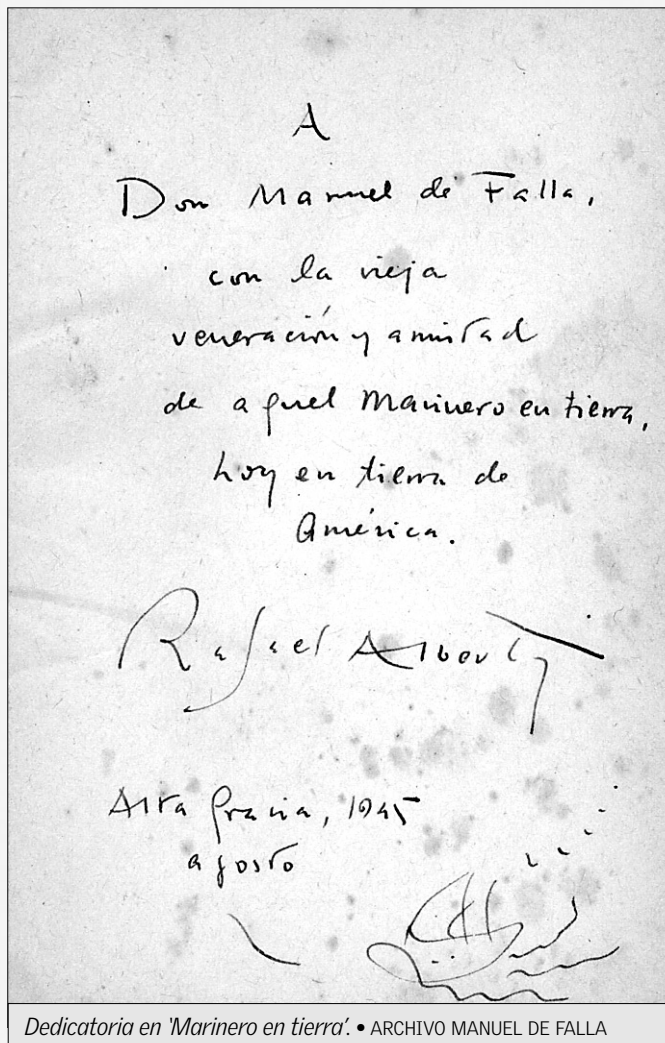 A
Don Manuel de Falla,
con la vieja
veneración y amistad
de aquel Marinero en tierra,
hoy en tierra de
América.
Rafael Alberti
Alta Gracia, 1945
agosto
Dedicatoria en 'Marinero en tierra'. • ARCHIVO MANUEL DE FALLA